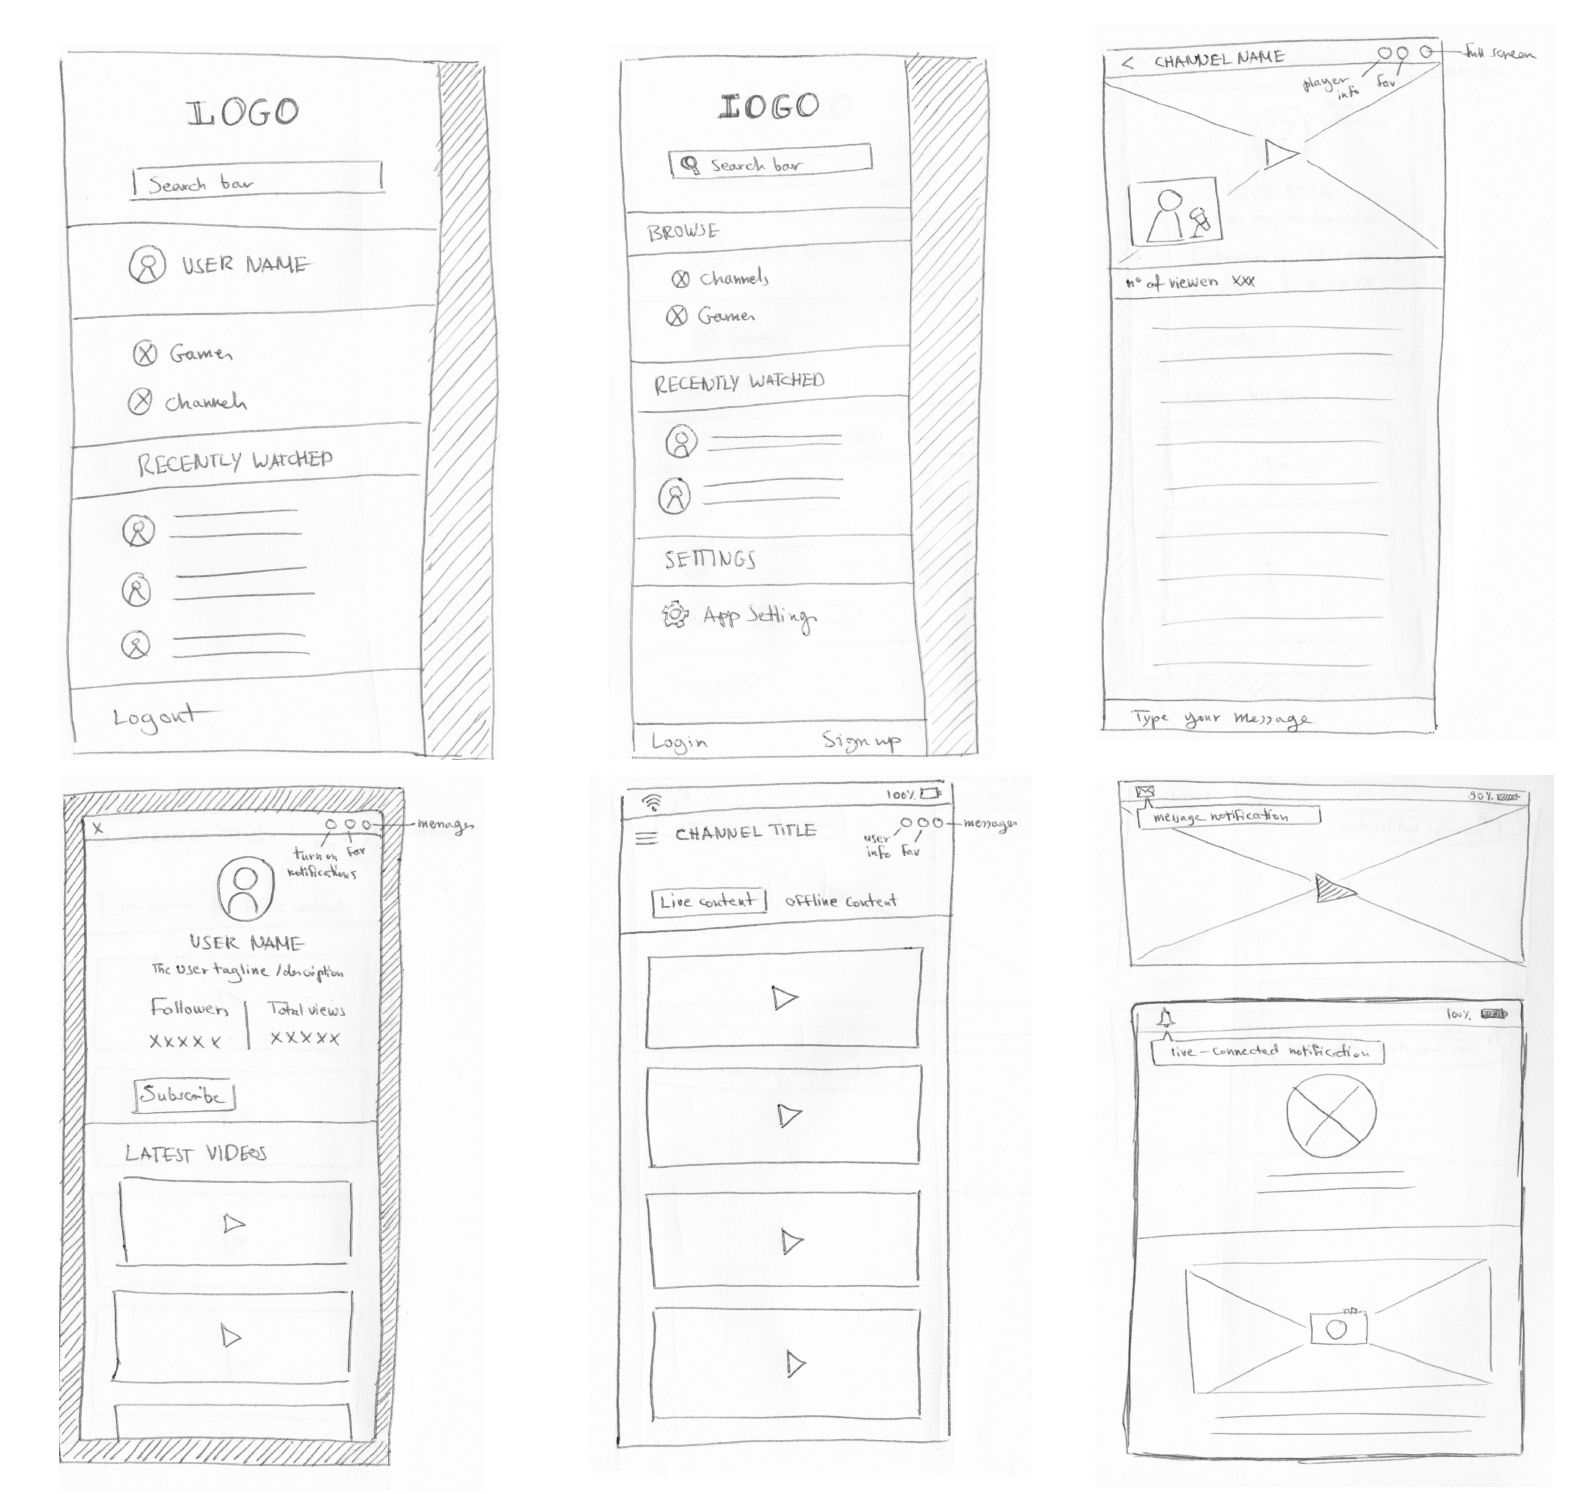 LOGO
Search bar
USER NAME
Games
Channels
RECENTLY WATCHED
Logout
LOGO
Search bar
BROWSE
Channels
Games
RECENTLY WATCHED
SETTINGS
App Settings
Login Sign up
< CHANNEL NAME
full screen
player info
fav
nº of viewers xxx
Type your message
X
messages
turn on notifications
fav
USER NAME
The user tagline / description
Followers Total views
XXXXX XXXXX
Subscribe
LATEST VIDEOS
100%
CHANNEL TITLE
messages
user info
fav
Live content offline content
90%
message notification
100%
live-connected notification